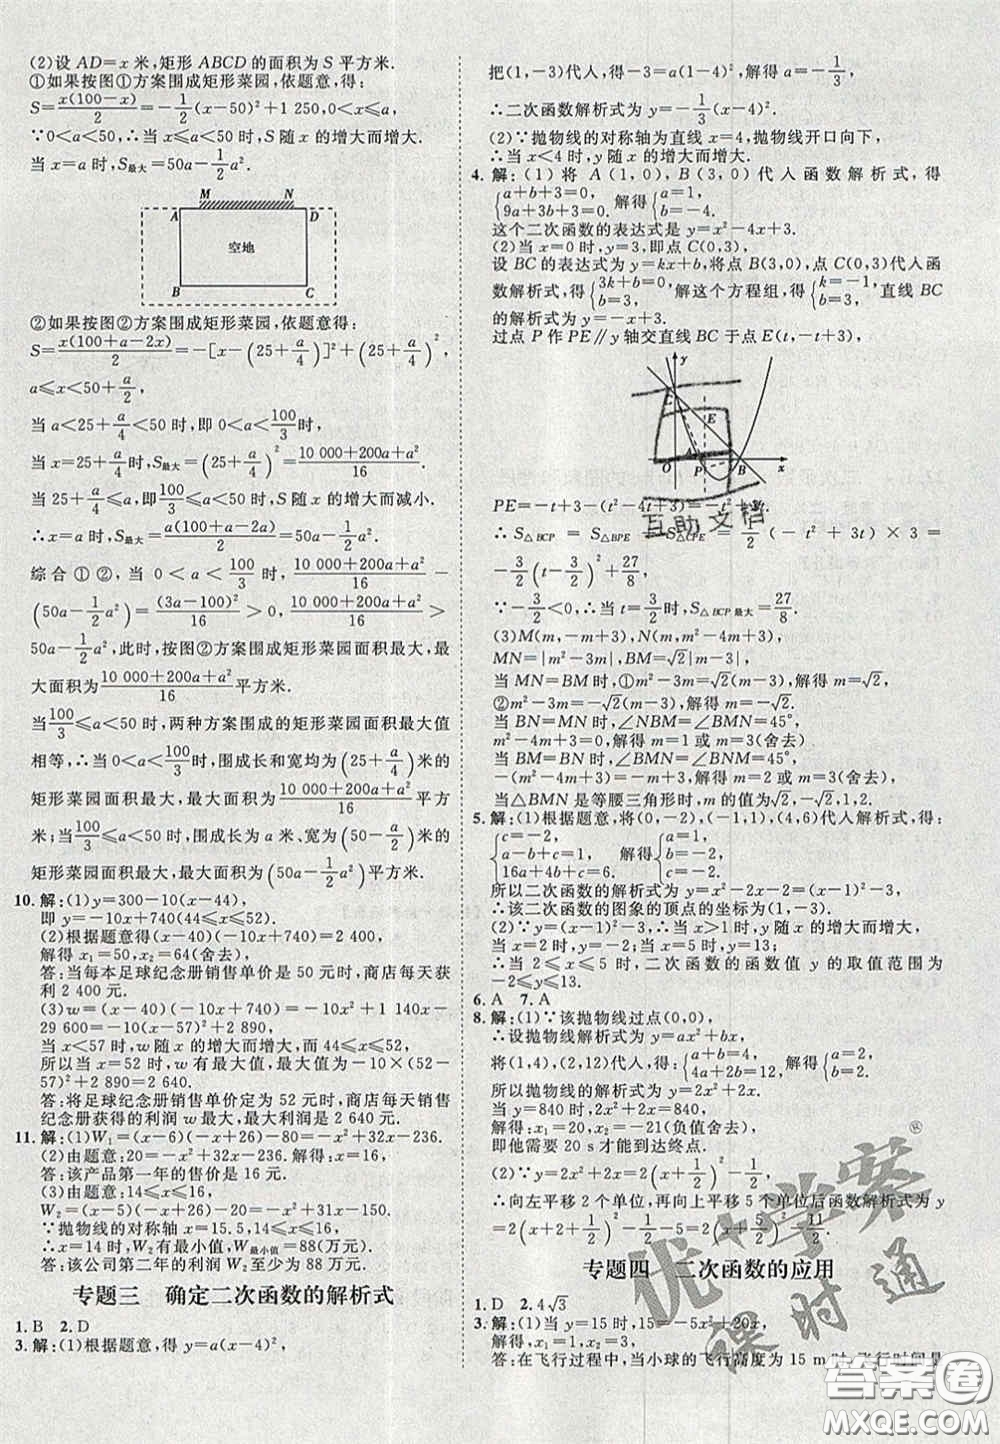 (2)设 AD=x 米,矩形 ABCD 的面积为 S 平方米.
①如果按图①方案围成矩形菜园,依题意,得:
S=x(100-x)/2=-1/2(x-50)²+1 250,0<x<a.
∵0<a<50,∴当 x≤a<50 时,S 随 x 的增大而增大.
当 x=a 时,S最大=50a-1/2a².
M N
A D
空地
B C
②如果按图②方案围成矩形菜园,依题意得:
S=x(100+a-2x)/2=-[x-(25+a/4)]²+(25+a/4)²,
a≤x<50+a/2,
当 a<25+a/4<50 时,即 0<a<100/3 时,
当 x=25+a/4 时,S最大=(25+a/4)²=(10 000+200a+a²)/16
当 25+a/4≤a<50 时,S 随 x 的增大而减小.
∴x=a 时,S最大=a(100+a-2a)/2=50a-1/2a².
综合①②,当 0<a<100/3 时,(10 000+200a+a²)/16-
(50a-1/2a²)=(3a-100)²/16>0,(10 000+200a+a²)/16>
50a-1/2a²,此时,按图②方案围成矩形菜园面积最大,最
大面积为(10 000+200a+a²)/16平方米.
当100/3≤a<50 时,两种方案围成的矩形菜园面积最大值
相等,∴当 0<a<100/3时,围成长和宽均为(25+a/4)米的
矩形菜园面积最大,最大面积为(10 000+200a+a²)/16平方
米;当100/3≤a<50 时,围成长为 a 米、宽为(50-a/2)米的
矩形菜园面积最大,最大面积为(50a-1/2a²)平方米.
10. 解:(1)y=300-10(x-44),
即 y=-10x+740(44≤x≤52).
(2)根据题意得(x-40)(-10x+740)=2 400,
解得 x₁=50,x₂=64(舍去),
答:当每本足球纪念册销售单价是 50 元时,商店每天获
利 2 400 元.
(3)w=(x-40)(-10x+740)=-10x²+1 140x-
29 600=-10(x-57)²+2 890,
当 x<57 时,w 随 x 的增大而增大,而 44≤x≤52,
所以当 x=52 时,w 有最大值,最大值为-10×(52-
57)²+2 890=2 640.
答:将足球纪念册销售单价定为 52 元时,商店每天销售
纪念册获得的利润 w 最大,最大利润是 2 640 元.
11. 解:(1)W₁=(x-6)(-x+26)-80=-x²+32x-236.
(2)由题意:20=-x²+32x-236.解得:x=16,
答:该产品第一年的售价是 16 元.
(3)由题意:14≤x≤16,
W₂=(x-5)(-x+26)-20=-x²+31x-150,
∵抛物线的对称轴为 x=15.5,14≤x≤16,
∴x=14 时,W₂有最小值,W最小值=88(万元).
答:该公司第二年的利润 W₂至少为 88 万元.
专题三 确定二次函数的解析式
1. B 2. D
3. 解:(1)根据题意,得 y=a(x-4)²,
把(1,-3)代入,得-3=a(1-4)²,解得 a=-1/3,
∴二次函数解析式为 y=-1/3(x-4)².
(2)∵抛物线的对称轴为直线 x=4,抛物线开口向下,
∴当 x<4 时,y 随 x 的增大而增大.
4. 解:(1)将 A(1,0),B(3,0)代入函数解析式,得
{a+b+3=0, 9a+3b+3=0. 解得{a=1, b=-4.
这个二次函数的表达式是 y=x²-4x+3.
(2)当 x=0 时,y=3,即点 C(0,3),
设 BC 的表达式为 y=kx+b,将点 B(3,0),点 C(0,3)代入函
数解析式,得{3k+b=0, b=3. 解这个方程组,得{k=-1, b=3. 直线 BC
的解析式为 y=-x+3.
过点 P 作 PE∥y 轴交直线 BC 于点 E(t,-t+3),
y
C
E
O P B x
PE=-t+3-(t²-4t+3)=-t²+3t,
∴S△BCP=S△BPE+S△CPE=1/2(-t²+3t)×3=
-3/2(t-3/2)²+27/8,
∵-3/2<0,∴当 t=3/2时,S△BCP最大=27/8.
(3)M(m,-m+3),N(m,m²-4m+3),
MN=|m²-3m|,BM=√2|m-3|,
当 MN=BM 时,①m²-3m=√2(m-3),解得 m=√2,
②m²-3m=-√2(m-3),解得 m=-√2.
当 BN=MN 时,∠NBM=∠BMN=45°,
m²-4m+3=0,解得 m=1 或 m=3(舍去)
当 BM=BN 时,∠BMN=∠BNM=45°,
-(m²-4m+3)=-m+3,解得 m=2 或 m=3(舍去),
当△BMN 是等腰三角形时,m 的值为√2,-√2,1,2.
5. 解:(1)根据题意,将(0,-2),(-1,1),(4,6)代入解析式,得:
{c=-2, a-b+c=1, 16a+4b+c=6, 解得{a=1, b=-2, c=-2.
所以二次函数的解析式为 y=x²-2x-2=(x-1)²-3,
∴该二次函数的图象的顶点的坐标为(1,-3).
(2)∵y=(x-1)²-3,∴当 x>1 时,y 随 x 的增大而增大,
当 x=3 时,y=1;当 x=5 时,y=13;
∴当 2≤x≤5 时,二次函数的函数值 y 的取值范围为
-2≤y≤13.
6. A 7. A
8. 解:(1)∵该抛物线过点(0,0),
∴设抛物线解析式为 y=ax²+bx,
将(1,4),(2,12)代入,得:{a+b=4, 4a+2b=12, 解得:{a=2, b=2,
所以抛物线的解析式为 y=2x²+2x,
当 y=840 时,2x²+2x=840,
解得:x=20 或 x=-21(负值舍去),
即他需要 20 s 才能到达终点.
(2)∵y=2x²+2x=2(x+1/2)²-1/2,
∴向左平移 2 个单位,再向上平移 5 个单位后函数解析式为 y
=2(x+2+1/2)²-1/2+5=2(x+5/2)²+9/2.
专题四 二次函数的应用
1. D 2. 4√3
3. 解:(1)当 y=15 时,15=-5x²+20x,
解得,x₁=1,x₂=3,
答:在飞行过程中,当小球的飞行高度为 15 m 时,飞行时间是
互助文档
优+学案
课时通
答案圈
MXQE.COM